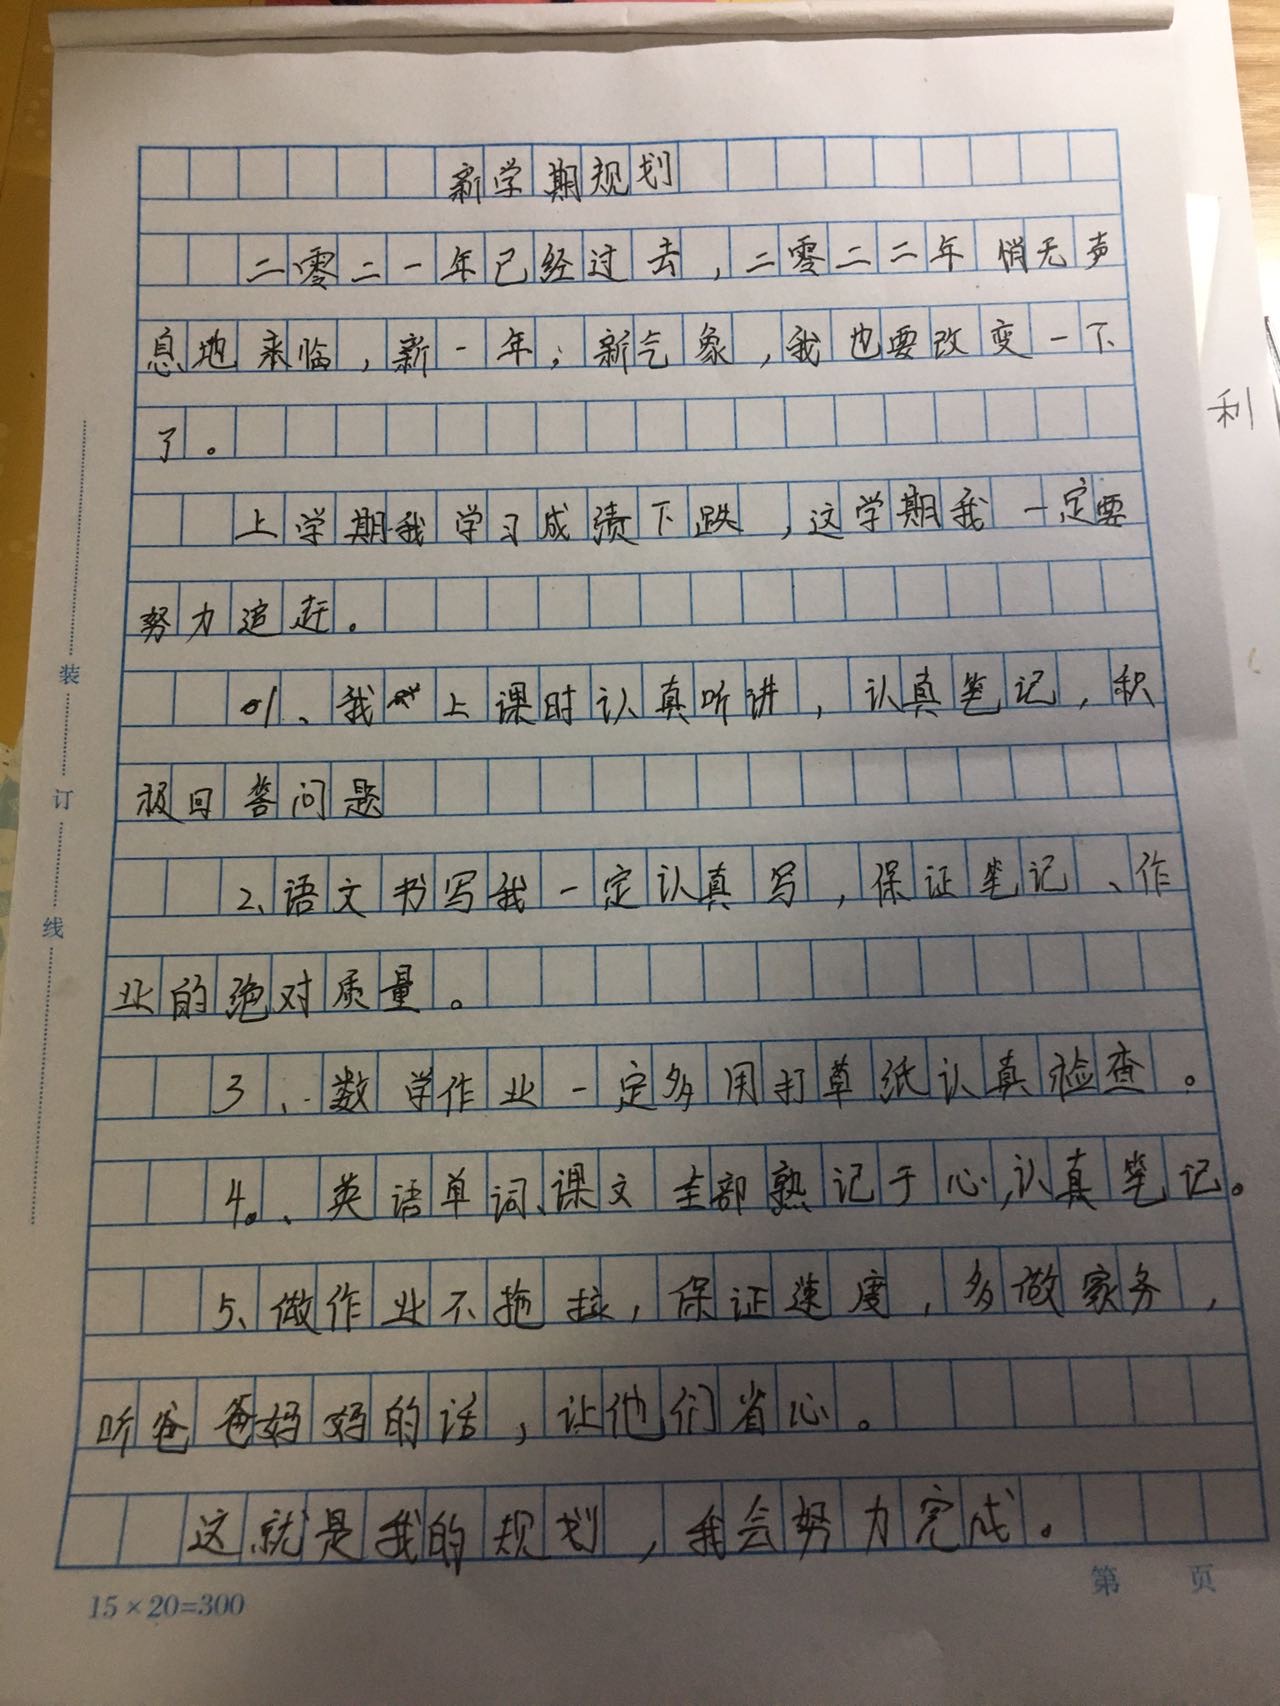 新学期规划
二零二一年已经过去，二零二二年悄无声
息地来临，新一年，新气象，我也要改变一下
了。
上学期我学习成绩下跌，这学期我一定要
努力追赶。
1、我上课时认真听讲，认真笔记，积
极回答问题
2、语文书写我一定认真写，保证笔记、作
业的绝对质量。
3、数学作业一定多用打草纸认真检查。
4、英语单词、课文全部熟记于心，认真笔记。
5、做作业不拖拉，保证速度，多做家务，
听爸爸妈妈的话，让他们省心。
这就是我的规划，我会努力完成。
装
订
线
15×20=300
第 页
利